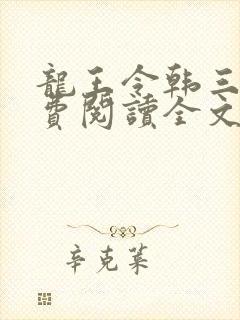 龍王令韩三
費閱讀全文
辛克萊